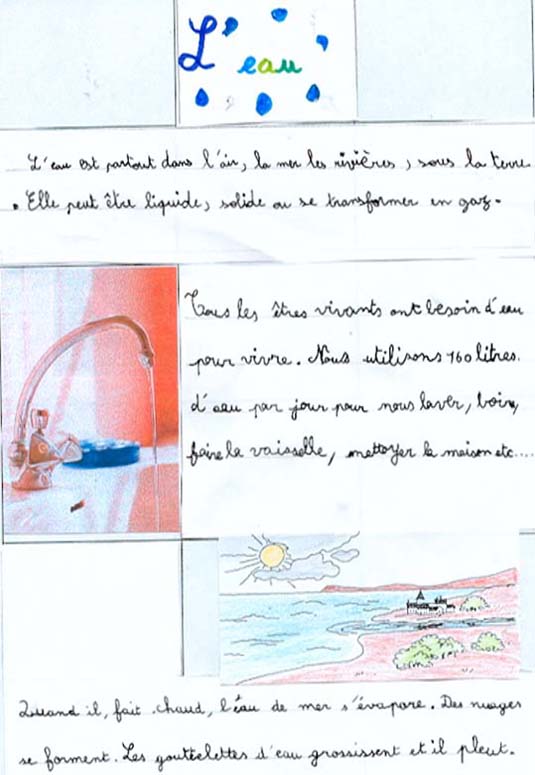 L'eau
L'eau est partout dans l'air, la mer les rivières, sous la terre
. Elle peut être liquide, solide ou se transformer en gaz.
Tous les êtres vivants ont besoin d'eau
pour vivre. Nous utilisons 160 litres
d'eau par jour pour nous laver, boire,
faire la vaisselle, nettoyer la maison etc....
Quand il, fait chaud, l'éau de mer s'évapore. Des nuages
se forment. Les goutêelettes d'eau grossissent et il pleut.